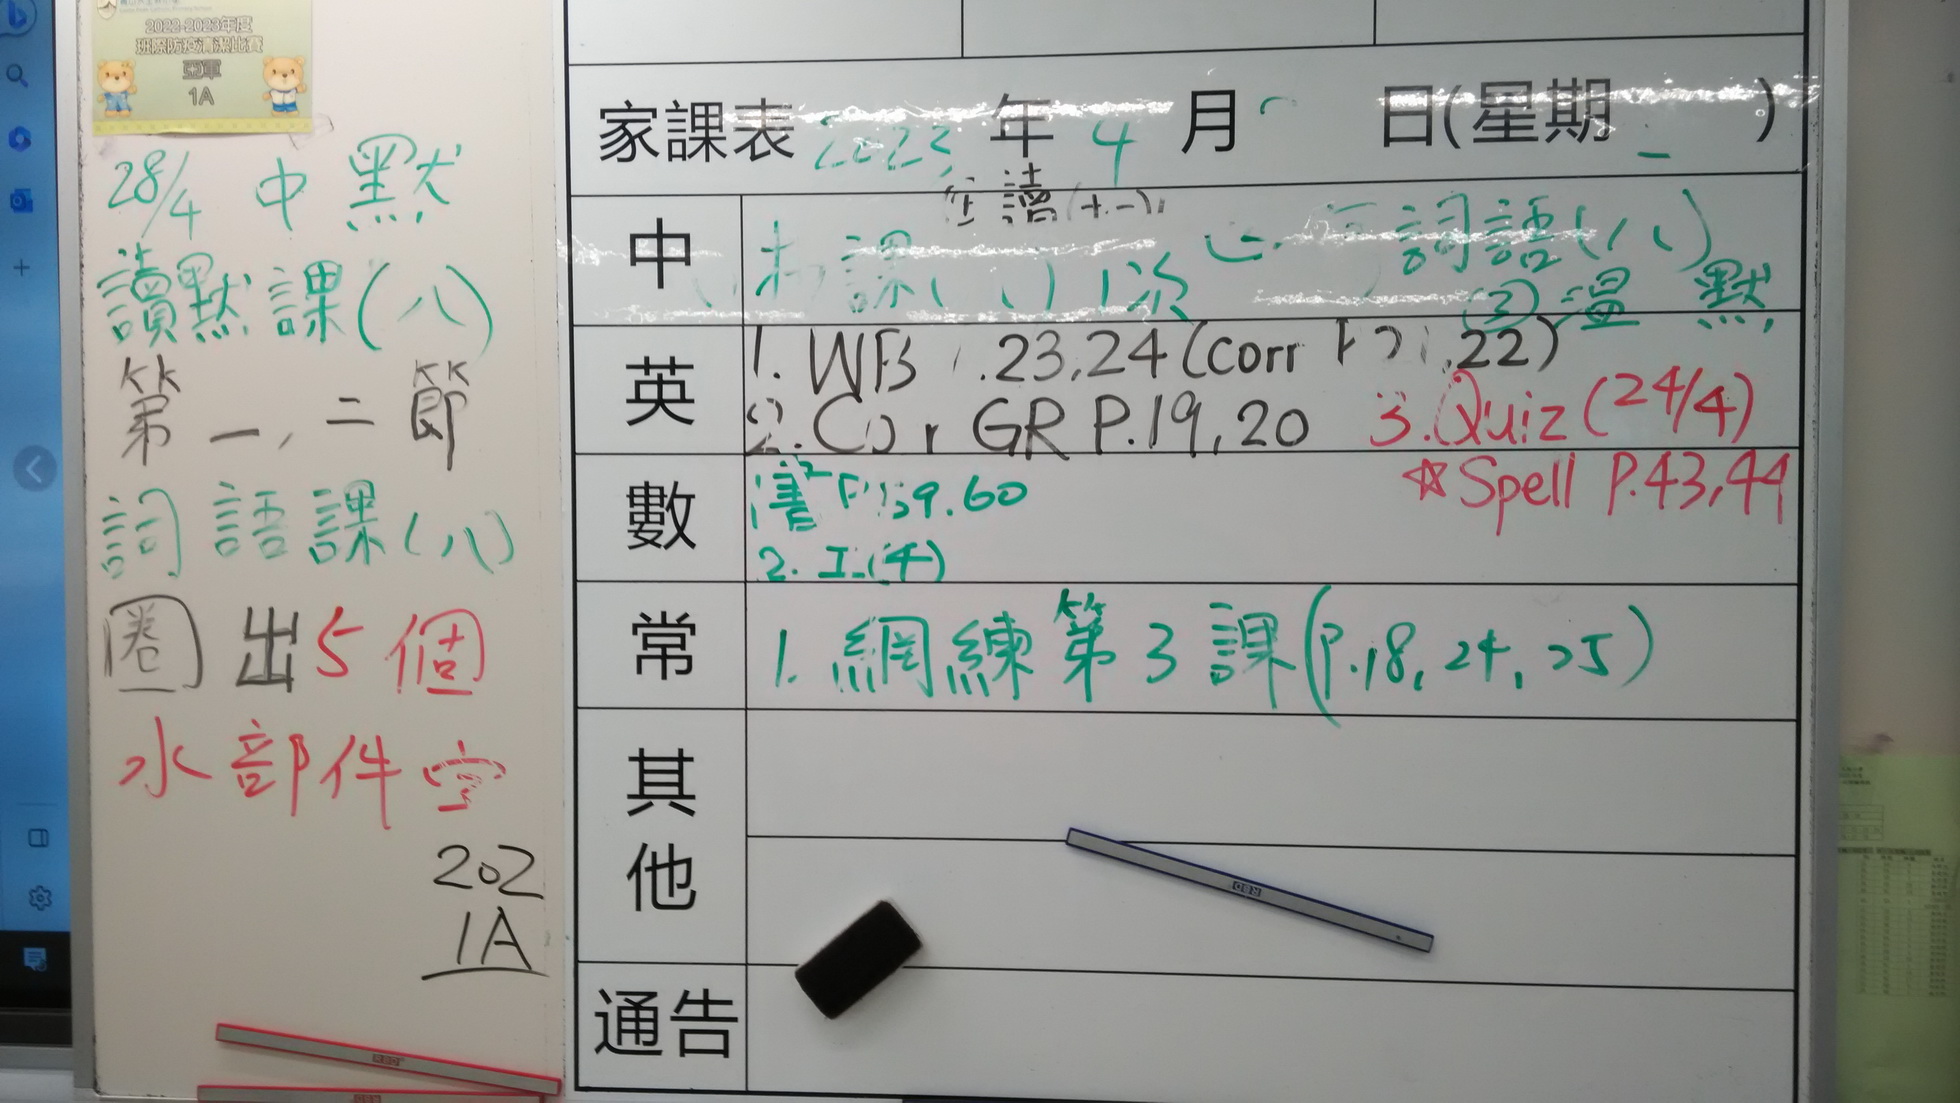 2022-2023年度
班際防疫清潔比賽
亞軍
1A
28/4 中 默
讀默課(八)
第一,二節
詞語課(八)
圈出5個
水部件字
202
1A
家課表 2023 年 4 月 日(星期 )
讀(十.一)
中
課 1次 詞語(八)
③溫 默
英
1. WB .23,24 (corr .22)
2. Cor GR P.19,20 3. Quiz (24/4)
☆Spell P.43,44
數
書 P.59.60
2. 工(4)
常
1. 網練第3課(P.18, 24, 25)
其他
通告